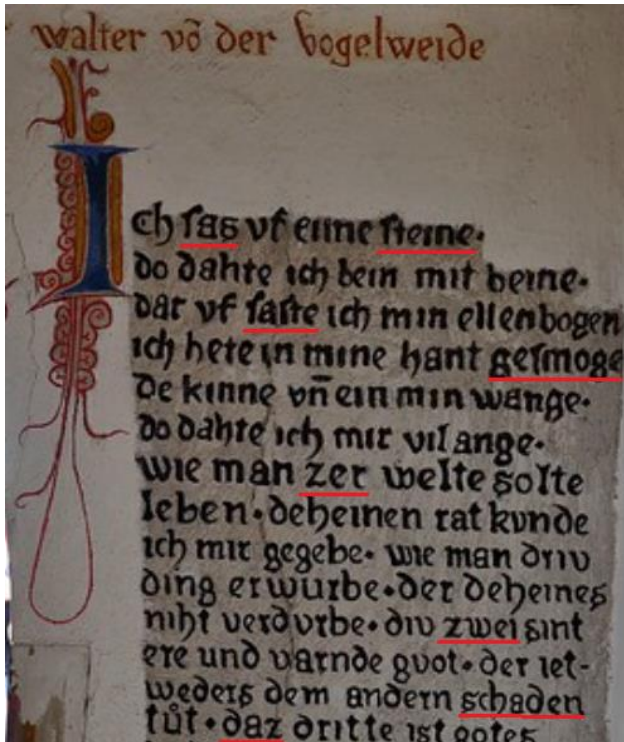 walter võ der vogelweide
Ich ſas vf eime ſteine·
do dahte ich bein mit beine·
dar vf ſaſte ich min ellenbogen
ich hete in mine hant geſmoge
de kinne vn̄ ein min wange·
do dahte ich mir vil ange·
wie man zer welte solte
leben·deheinen rat kvnde
ich mir gegebe· wie man driv
ding erwurbe·der deheines
niht verdvrbe·div zwei sint
ere und varnde gvot·der iet-
weders dem andern schaden
tůt·daz dritte ist gotes